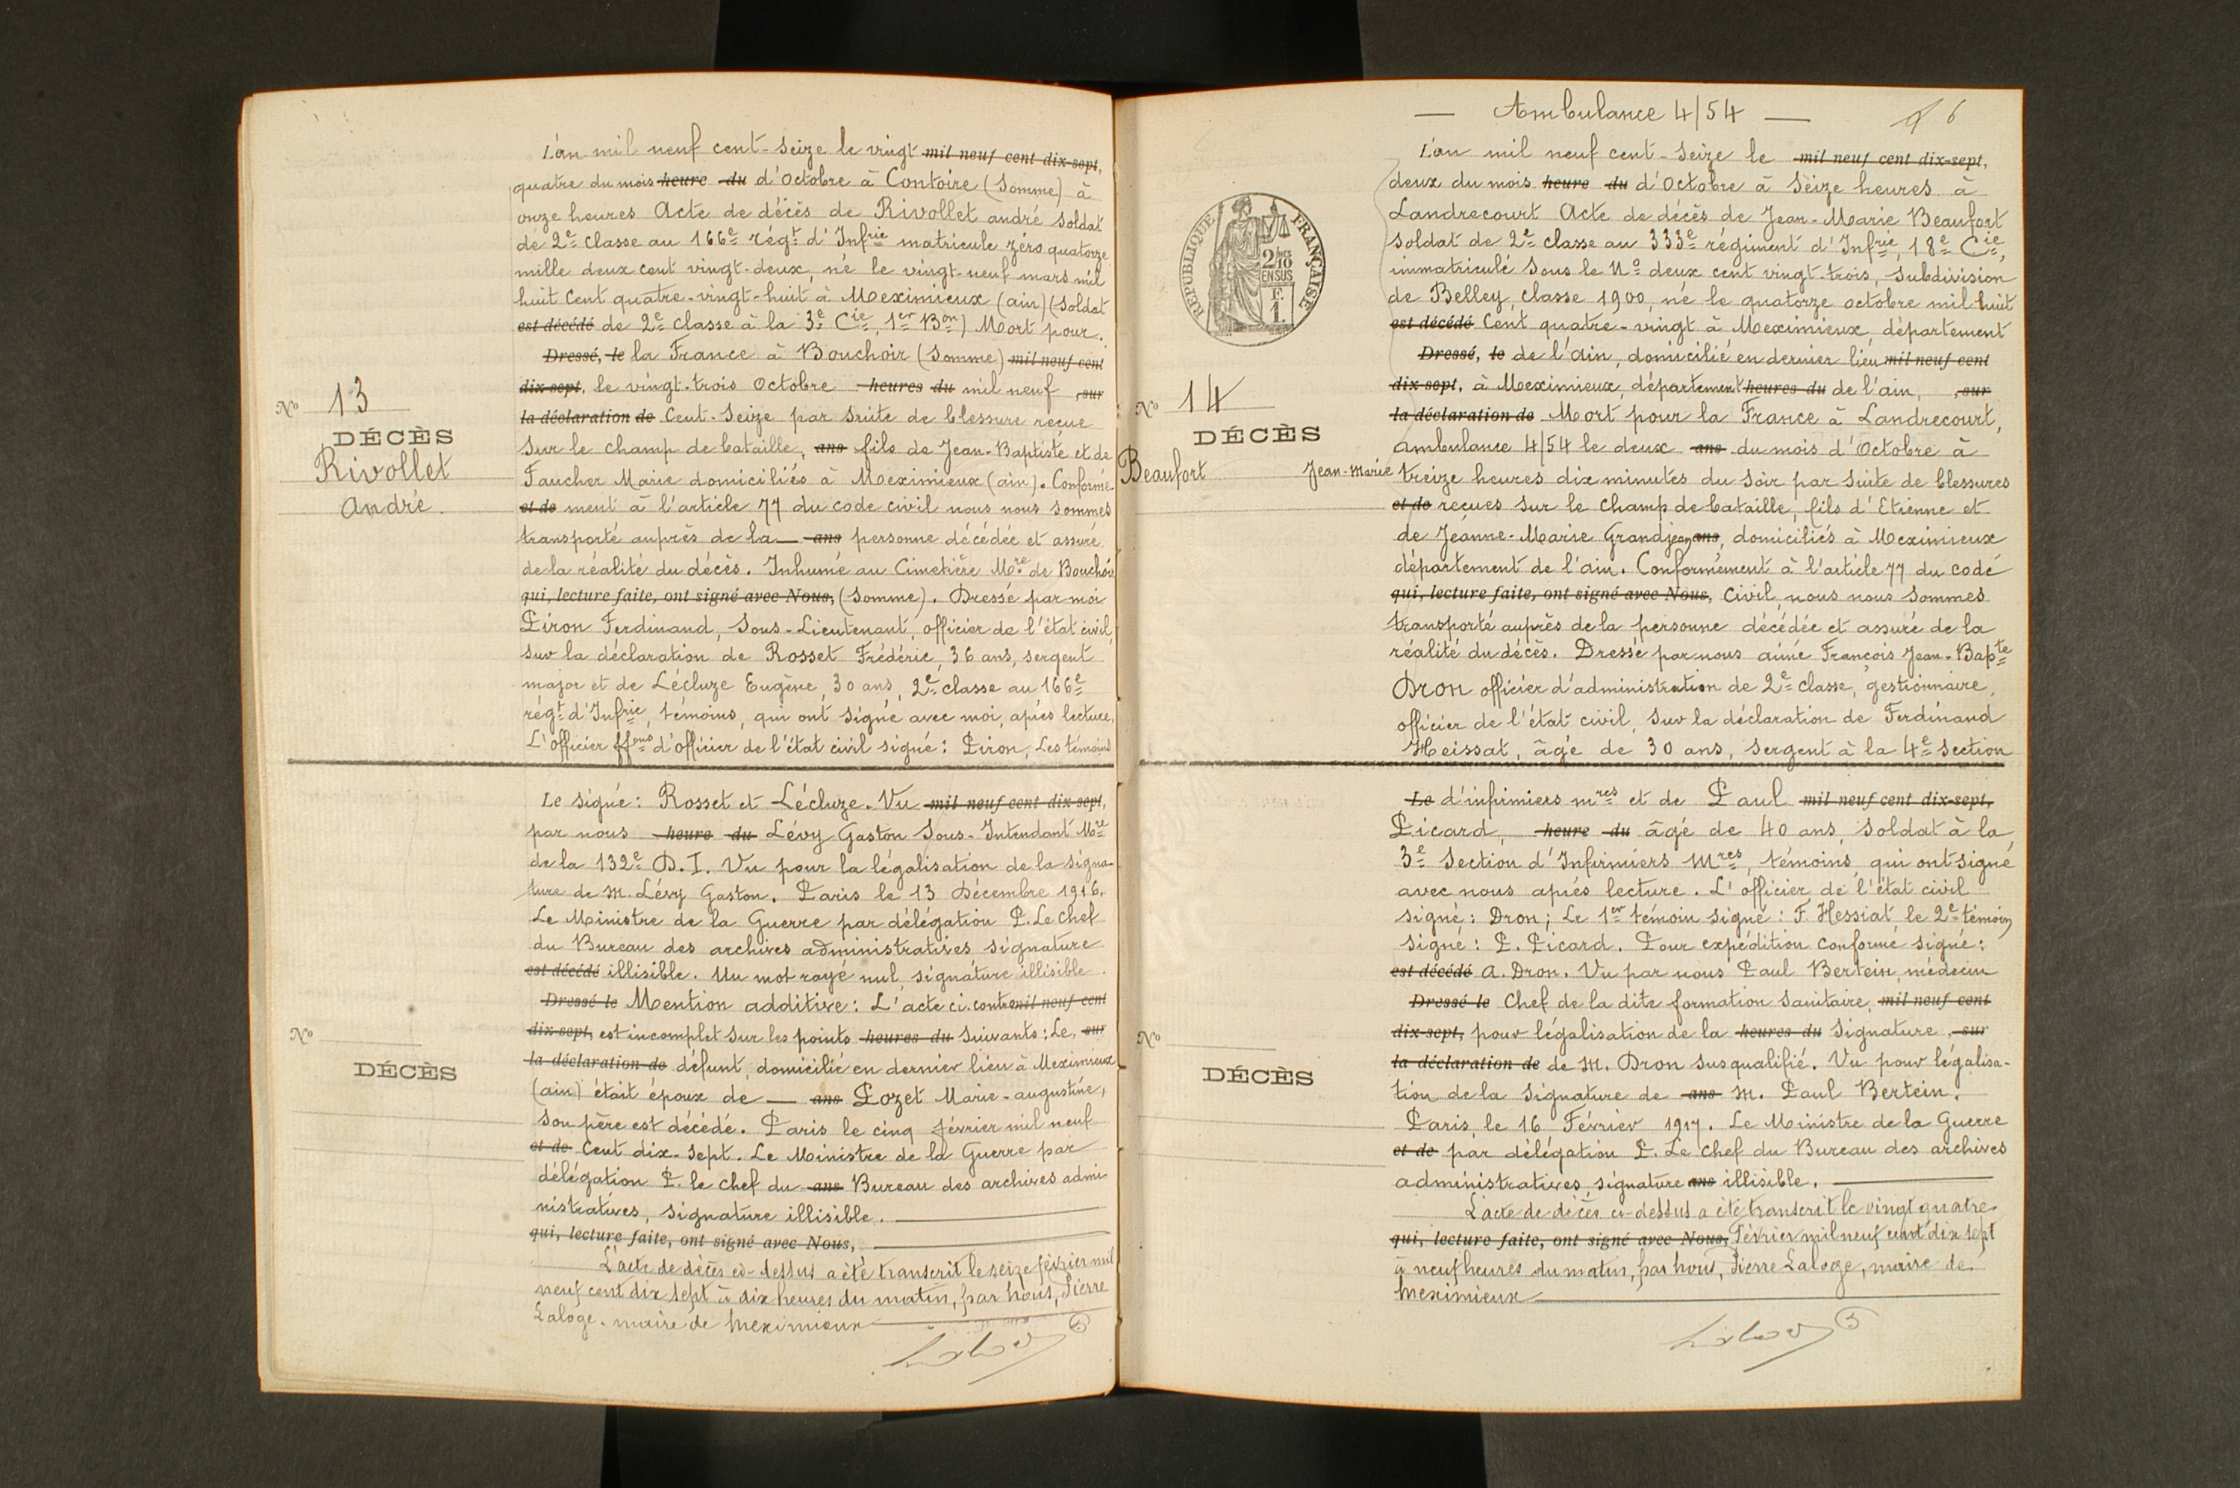 L'an mil neuf cent-seize le vingt mil neuf cent dix-sept,
quatre du mois heure du d'Octobre à Contoire (Somme) à
onze heures Acte de décès de Rivollet andré soldat
de 2e classe au 166e régt d'Infrie matricule zéro quatorze
mille deux cent vingt-deux, né le vingt-neuf mars mil
huit cent quatre-vingt-huit à Meximieux (ain) (soldat
est décédé de 2e classe à la 3e Cie, 1er Bon) Mort pour
Dressé, le la France à Bouchoir (Somme) mil neuf cent
dix-sept, le vingt-trois Octobre heures du mil neuf , sur
No 13 la déclaration de Cent-Seize par suite de blessure reçue
DÉCÈS sur le champ de bataille, ans fils de Jean-Baptiste et de
Rivollet Faucher Marie domiciliés à Meximieux (ain). Conformé-
André. et de ment à l'article 77 du code civil nous nous sommes
transporté auprès de la — ans personne décédée et assuré
de la réalité du décès. Inhumé au Cimetière Mre de Bouchoir
qui, lecture faite, ont signé avec Nous, (Somme). Dressé par moi
Piron Ferdinand, Sous-Lieutenant, officier de l'état civil,
sur la déclaration de Rosset Frédéric, 36 ans, sergent
major et de Lécluze Eugène, 30 ans, 2e classe au 166e
régt d'Infrie, témoins, qui ont signé avec moi, après lecture,
L'officier ffons d'officier de l'état civil signé: Piron, Les témoins
Le signé: Rosset et Lécluze. Vu mil neuf cent dix-sept,
par nous heure du Lévy Gaston Sous-Intendant Mre
de la 132e D.I. Vu pour la légalisation de la signa-
ture de M. Lévy Gaston. Paris le 13 Décembre 1916.
Le Ministre de la Guerre par délégation P. Le chef
du Bureau des archives administratives signature
est décédé illisible. Un mot rayé nul, signature illisible.
Dressé le Mention additive: L'acte ci-contre mil neuf cent
No dix-sept, est incomplet sur les points heures du suivants: Le, sur
la déclaration de défunt, domicilié en dernier lieu à Meximieux
DÉCÈS (ain) était époux de — ans Pozet Marie-augustine,
son père est décédé. Paris le cinq février mil neuf
et de Cent dix-sept. Le Ministre de la Guerre par
délégation P. le chef du ans Bureau des archives admi
nistratives, signature illisible.
qui, lecture faite, ont signé avec Nous,
L'acte de décès ci-dessus a été transcrit le seize février mil
neuf cent dix sept à dix heures du matin, par nous, Pierre
Laloge, maire de Meximieux
— Ambulance 4/54 — 6
L'an mil neuf cent-seize le mil neuf cent dix-sept,
deux du mois heure du d'Octobre à Seize heures à
Landrecourt Acte de décès de Jean-Marie Beaufort
Soldat de 2e classe au 333e régiment d'Infrie, 18e Cie,
immatriculé sous le No deux cent vingt-trois, subdivision
de Belley, classe 1900, né le quatorze octobre mil huit
est décédé Cent quatre-vingt à Meximieux, département
Dressé, le de l'ain, domicilié en dernier lieu mil neuf cent
dix-sept, à Meximieux, département heures du de l'ain, , sur
No 14 la déclaration de Mort pour la France à Landrecourt,
DÉCÈS ambulance 4/54 le deux ans du mois d'Octobre à
Beaufort Jean-Marie treize heures dix minutes du soir par suite de blessures
et de reçues sur le champ de bataille, fils d'Etienne et
de Jeanne-Marie Grandjean ans, domiciliés à Meximieux
département de l'ain. Conformément à l'article 77 du code
qui, lecture faite, ont signé avec Nous, civil, nous nous sommes
transporté auprès de la personne décédée et assuré de la
réalité du décès. Dressé par nous aimé François Jean-Bapte
Dron officier d'administration de 2e classe, gestionnaire,
officier de l'état civil, sur la déclaration de Ferdinand
Heissat, âgé de 30 ans, sergent à la 4e section
Le d'infirmiers mres et de Paul mil neuf cent dix-sept,
Picard, heure du âgé de 40 ans, soldat à la
3e Section d'Infirmiers Mres, témoins, qui ont signé
avec nous après lecture. L'officier de l'état civil
signé: Dron; Le 1er témoin signé: F. Hessiat, le 2e témoin
signé: P. Picard. Pour expédition conforme signé:
est décédé A. Dron. Vu par nous Paul Bertein, médecin
Dressé le Chef de la dite formation sanitaire, mil neuf cent
No dix-sept, pour légalisation de la heures du signature, sur
la déclaration de de M. Dron susqualifié. Vu pour légalisa-
DÉCÈS tion de la signature de ans M. Paul Bertein.
Paris, le 16 Février 1917. Le Ministre de la Guerre
et de par délégation P. Le chef du Bureau des archives
administratives, signature ans illisible.
L'acte de décès ci-dessus a été transcrit le vingt quatre
qui, lecture faite, ont signé avec Nous, février mil neuf cent dix sept
à neuf heures du matin, par nous, Pierre Laloge, maire de
Meximieux
REPUBLIQUE FRANÇAISE
2/10
EN SUS
F.
1.